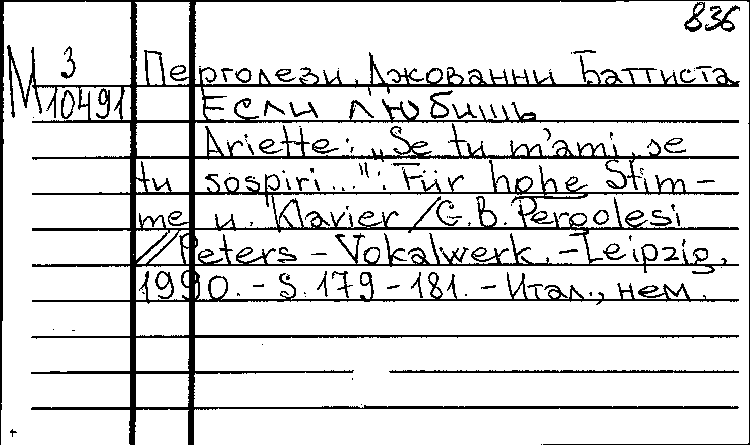 836
М 3 Перголези, Джованни Баттиста
10491 Если любишь
Ariette: „Se tu m'ami, se
tu sospiri...": Für hohe Stim-
me u. Klavier / G.B. Pergolesi
// Peters - Vokalwerk. - Leipzig,
1990. - S. 179 - 181. - Итал., нем.